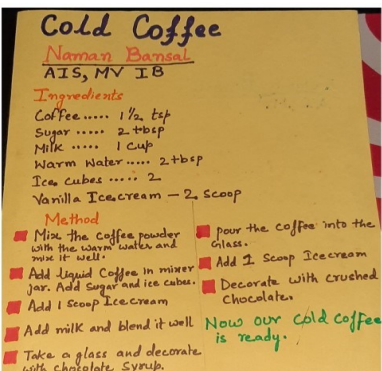 Cold Coffee
Naman Bansal
AIS, MV IB
Ingredients
Coffee..... 1½ tsp
Sugar ..... 2 tbsp
Milk ..... 1 cup
Warm Water..... 2 tbsp
Ice cubes ..... 2
Vanilla Icecream — 2 scoop
Method
Mix the coffee powder
with the warm water and
mix it well.
Add liquid Coffee in mixer
jar. Add Sugar and ice cubes.
Add 1 scoop Icecream
Add milk and blend it well
Take a glass and decorate
with chocolate syrup.
pour the coffee into the
Glass.
Add 1 Scoop Icecream
Decorate with crushed
Chocolate.
Now our cold coffee
is ready.